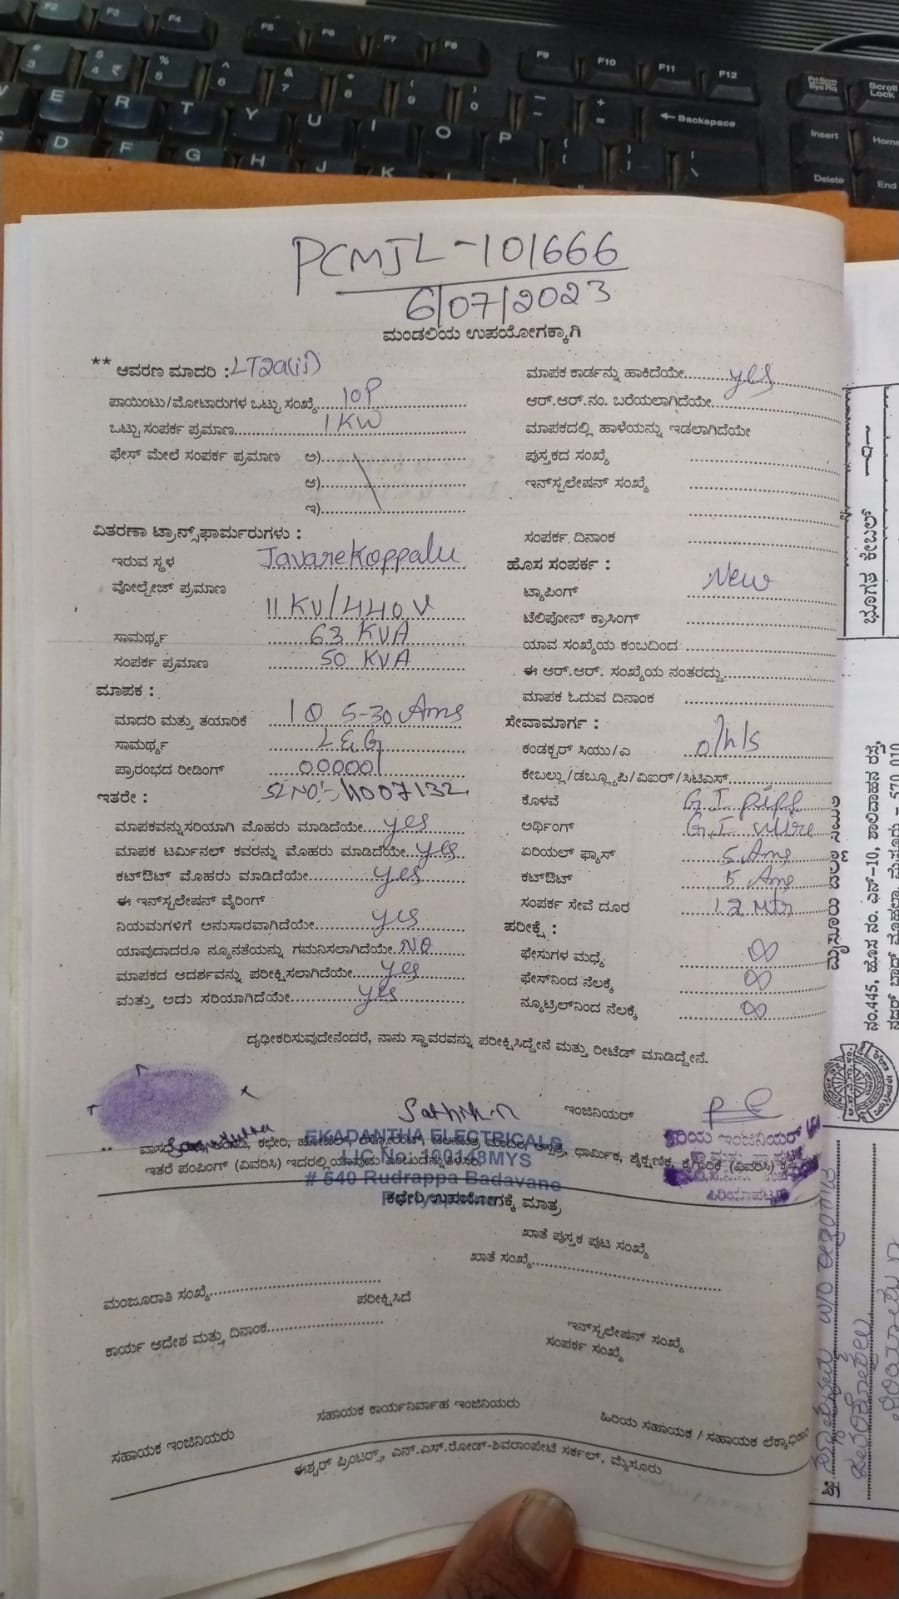 PCMJL-101666
6/07/2023
ಮಂಡಲಿಯ ಉಪಯೋಗಕ್ಕಾಗಿ
** ಆವರಣ ಮಾದರಿ : LT2a(ii)
ಪಾಯಿಂಟು/ಮೋಟಾರುಗಳ ಒಟ್ಟು ಸಂಖ್ಯೆ 10P
ಒಟ್ಟು ಸಂಪರ್ಕ ಪ್ರಮಾಣ 1KW
ಫೇಸ್ ಮೇಲೆ ಸಂಪರ್ಕ ಪ್ರಮಾಣ ಅ)
ಆ)
ಇ)
ವಿತರಣಾ ಟ್ರಾನ್ಸ್‌ಫಾರ್ಮರುಗಳು :
ಇರುವ ಸ್ಥಳ Javarekoppalu
ವೋಲ್ಟೇಜ್ ಪ್ರಮಾಣ
11KV/440V
ಸಾಮರ್ಥ್ಯ 63 KVA
ಸಂಪರ್ಕ ಪ್ರಮಾಣ 50 KVA
ಮಾಪಕ :
ಮಾದರಿ ಮತ್ತು ತಯಾರಿಕೆ 1Φ 5-30 Ams
ಸಾಮರ್ಥ್ಯ L&G
ಪ್ರಾರಂಭದ ರೀಡಿಂಗ್ 000001
ಇತರೇ : Sl NO:-11007132
ಮಾಪಕವನ್ನು ಸರಿಯಾಗಿ ಮೊಹರು ಮಾಡಿದೆಯೇ yes
ಮಾಪಕ ಟರ್ಮಿನಲ್ ಕವರನ್ನು ಮೊಹರು ಮಾಡಿದೆಯೇ yes
ಕಟ್‌ಔಟ್ ಮೊಹರು ಮಾಡಿದೆಯೇ yes
ಈ ಇನ್‌ಸ್ಟಲೇಷನ್ ವೈರಿಂಗ್
ನಿಯಮಗಳಿಗೆ ಅನುಸಾರವಾಗಿದೆಯೇ yes
ಯಾವುದಾದರೂ ನ್ಯೂನತೆಯನ್ನು ಗಮನಿಸಲಾಗಿದೆಯೇ NO
ಮಾಪಕದ ಆದರ್ಶವನ್ನು ಪರೀಕ್ಷಿಸಲಾಗಿದೆಯೇ yes
ಮತ್ತು ಅದು ಸರಿಯಾಗಿದೆಯೇ yes
ಮಾಪಕ ಕಾರ್ಡನ್ನು ಹಾಕಿದೆಯೇ yes
ಆರ್.ಆರ್.ನಂ. ಬರೆಯಲಾಗಿದೆಯೇ
ಮಾಪಕದಲ್ಲಿ ಹಾಳೆಯನ್ನು ಇಡಲಾಗಿದೆಯೇ
ಪುಸ್ತಕದ ಸಂಖ್ಯೆ
ಇನ್‌ಸ್ಟಲೇಷನ್ ಸಂಖ್ಯೆ
ಸಂಪರ್ಕ ದಿನಾಂಕ
ಹೊಸ ಸಂಪರ್ಕ :
ಟ್ಯಾಪಿಂಗ್ New
ಟೆಲಿಫೋನ್ ಕ್ರಾಸಿಂಗ್
ಯಾವ ಸಂಖ್ಯೆಯ ಕಂಬದಿಂದ
ಈ ಆರ್.ಆರ್. ಸಂಖ್ಯೆಯ ನಂತರದ್ದು
ಮಾಪಕ ಓದುವ ದಿನಾಂಕ
ಸೇವಾಮಾರ್ಗ :
ಕಂಡಕ್ಟರ್ ಸಿಯು/ಎ o/h/s
ಕೇಬಲ್ಲು/ಡಬ್ಲ್ಯೂಪಿ/ವಿಐರ್/ಸಿಟಿಎಸ್
ಕೊಳವೆ G.I pipe
ಅರ್ಥಿಂಗ್ G.I wire
ಏರಿಯಲ್ ಫ್ಯಾಸ್ 5 Ams
ಕಟ್‌ಔಟ್ 5 Ams
ಸಂಪರ್ಕ ಸೇವೆ ದೂರ 12 Mtr
ಪರೀಕ್ಷೆ :
ಫೇಸುಗಳ ಮಧ್ಯೆ ∞
ಫೇಸ್‌ನಿಂದ ನೆಲಕ್ಕೆ ∞
ನ್ಯೂಟ್ರಲ್‌ನಿಂದ ನೆಲಕ್ಕೆ ∞
ದೃಢೀಕರಿಸುವುದೇನೆಂದರೆ, ನಾನು ಸ್ಥಾವರವನ್ನು ಪರೀಕ್ಷಿಸಿದ್ದೇನೆ ಮತ್ತು ರೀಟೆಡ್ ಮಾಡಿದ್ದೇನೆ.
ಇಂಜಿನಿಯರ್
ಕಿರಿಯ ಇಂಜಿನಿಯರ್
ಪಿರಿಯಾಪಟ್ಟಣ
EKADANTHA ELECTRICALS
LIC No: 100148MYS
# 540 Rudrappa Badavane
ಇತರೆ ಪಂಪಿಂಗ್ (ವಿವರಿಸಿ)
ಕಛೇರಿ ಉಪಯೋಗಕ್ಕೆ ಮಾತ್ರ
ಖಾತೆ ಪುಸ್ತಕ ಪುಟ ಸಂಖ್ಯೆ
ಖಾತೆ ಸಂಖ್ಯೆ
ಮಂಜೂರಾತಿ ಸಂಖ್ಯೆ
ಪರೀಕ್ಷಿಸಿದೆ
ಕಾರ್ಯ ಆದೇಶ ಮತ್ತು ದಿನಾಂಕ
ಇನ್‌ಸ್ಟಲೇಷನ್ ಸಂಖ್ಯೆ
ಸಂಪರ್ಕ ಸಂಖ್ಯೆ
ಸಹಾಯಕ ಇಂಜಿನಿಯರು
ಸಹಾಯಕ ಕಾರ್ಯನಿರ್ವಾಹ ಇಂಜಿನಿಯರು
ಹಿರಿಯ ಸಹಾಯಕ / ಸಹಾಯಕ ಲೆಕ್ಕಾಧಿಕಾರಿ
ಈಶ್ವರ್ ಪ್ರಿಂಟರ್ಸ್, ಎನ್.ಎಸ್.ರೋಡ್-ಶಿವರಾಂಪೇಟೆ ಸರ್ಕಲ್, ಮೈಸೂರು
ಭೂಗತ ಕೇಬಲ್
ನಂ.445, ಹೊಸ ನಂ. ಎನ್-10, ಶಾಲಿವಾಹನ ರಸ್ತೆ